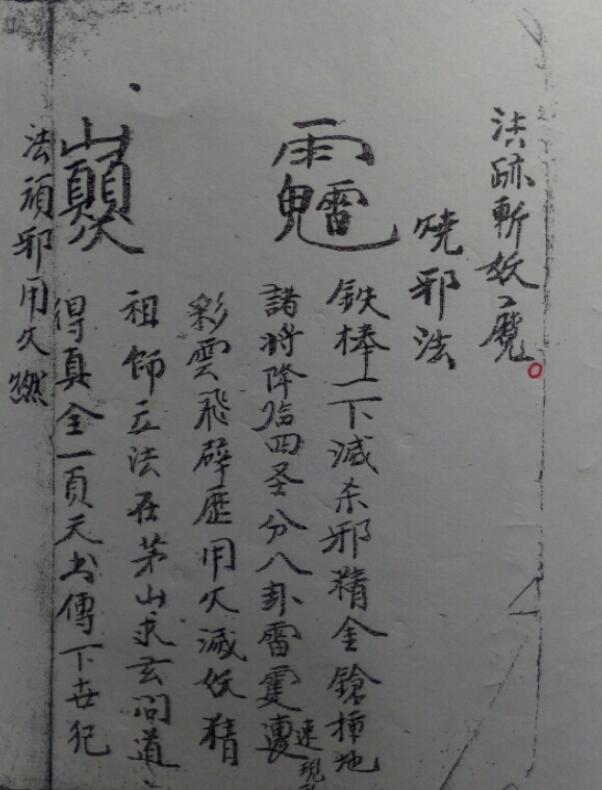 法跡斬妖魔。
燒邪法
鉄棒一下滅杀邪精金鎗插地
諸将降临四圣分八卦雷霆
速現
彩雲飛霹歷用火滅妖精
祖師立法在茅山求玄问道
得真全一頁天书傳下世犯
法頑邪用火燃